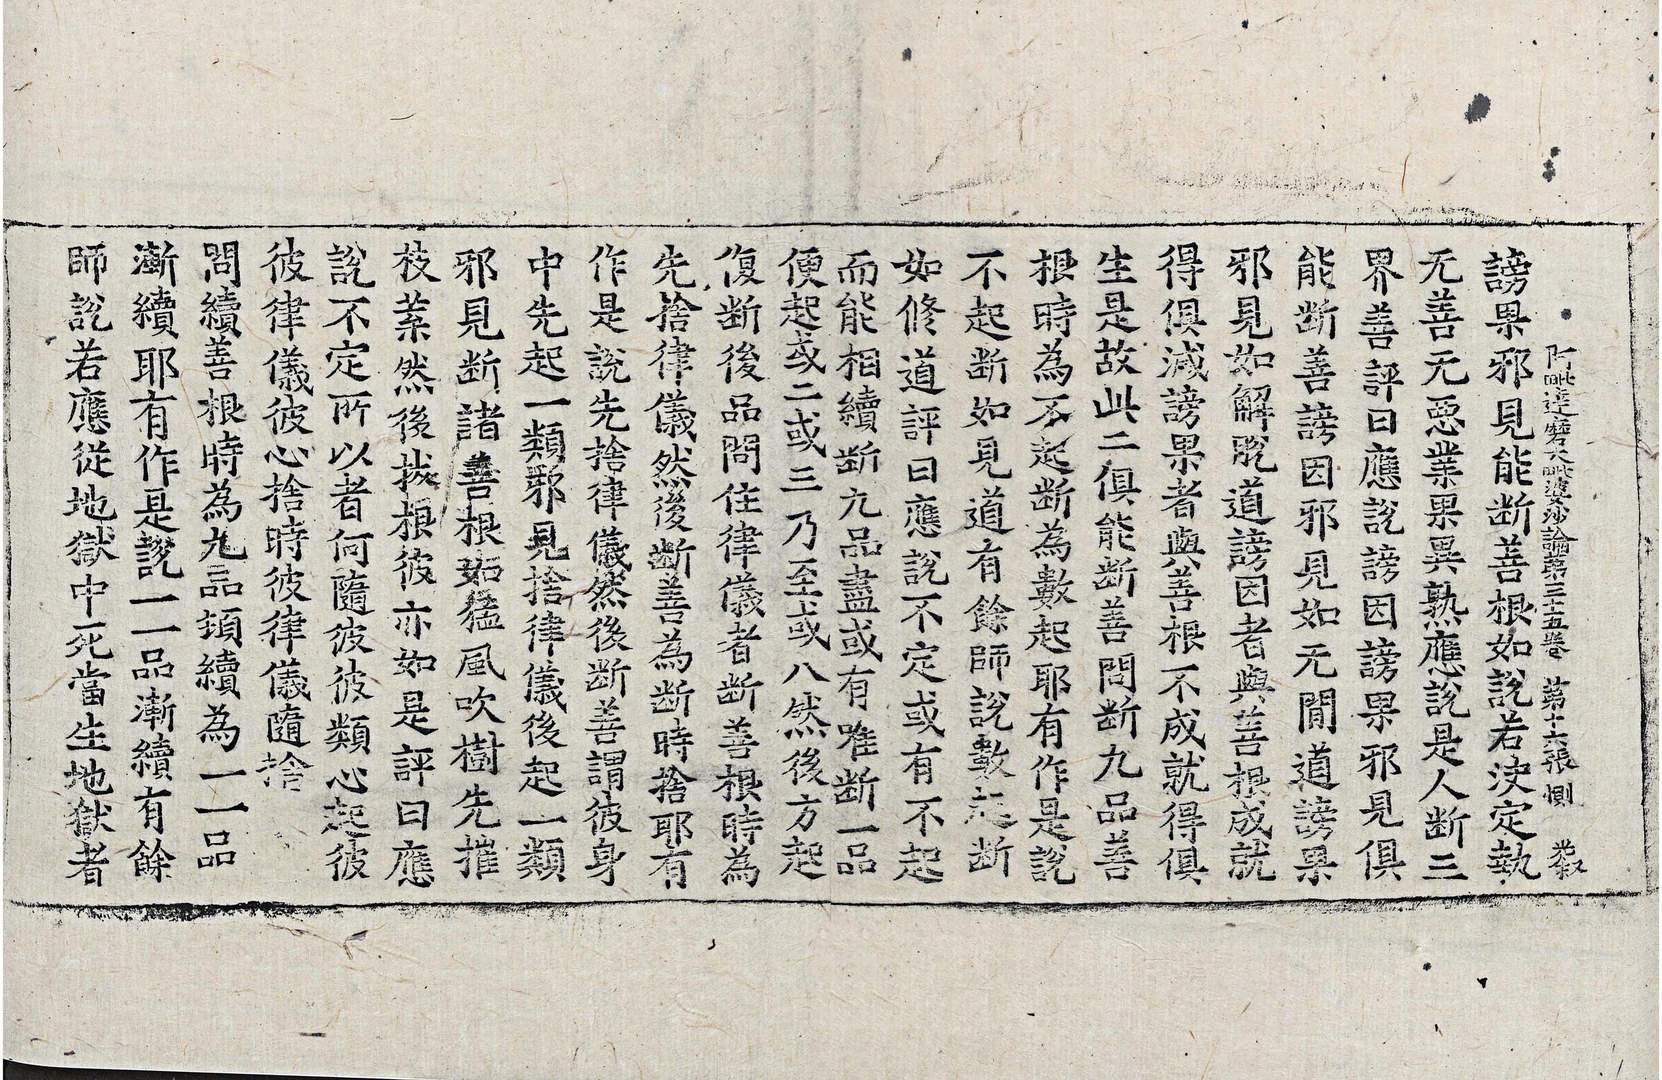 阿毗達磨大毗婆沙論第三十五卷　第十六張　惻
謗果邪見能斷善根如說若決定執
无善无惡業果異熟應說是人斷三
界善評曰應說謗因謗果邪見俱
能斷善謗因邪見如无閒道謗果
邪見如解脫道謗因者與善根成就
得俱滅謗果者與善根不成就得俱
生是故此二俱能斷善問斷九品善
根時為不起斷為數起耶有作是說
不起斷如見道有餘師說數起斷
如修道評曰應說不定或有不起
而能相續斷九品盡或有唯斷一品
便起或二或三乃至或八然後方起
復斷後品問住律儀者斷善根時為
先捨律儀然後斷善為斷時捨耶有
作是說先捨律儀然後斷善謂彼身
中先起一類邪見捨律儀後起一類
邪見斷諸善根如猛風吹樹先摧
枝葉然後拔根彼亦如是評曰應
說不定所以者何隨彼彼類心起彼
彼律儀彼心捨時彼律儀隨捨
問續善根時為九品頓續為一一品
漸續耶有作是說一一品漸續有餘
師說若應從地獄中死當生地獄者